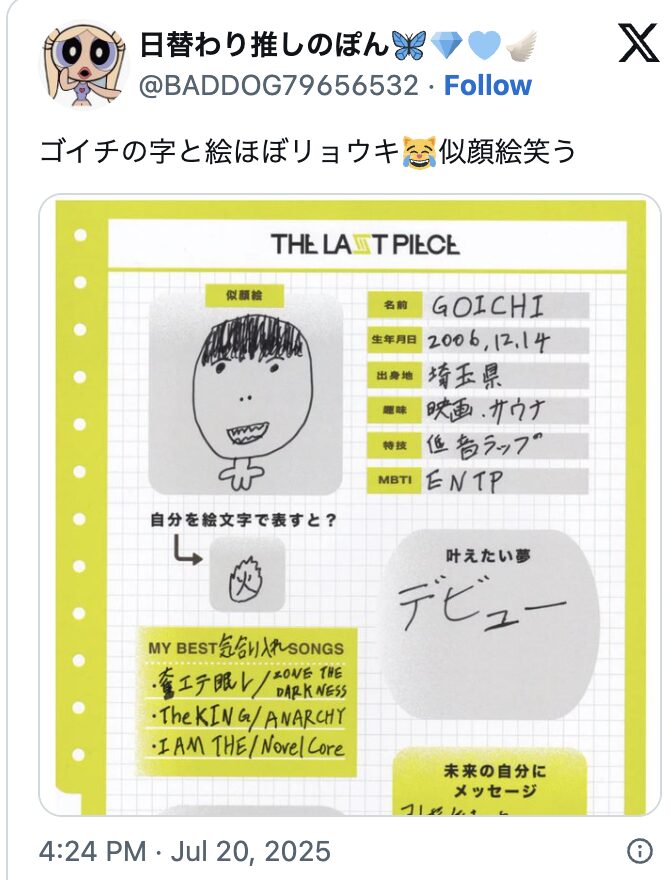 日替わり推しのぽん🦋💎🩵🪽
@BADDOG79656532 · Follow
ゴイチの字と絵ほぼリョウキ😹似顔絵笑う
THE LAST PIECE
似顔絵
名前 GOICHI
生年月日 2006,12.14
出身地 埼玉県
趣味 映画.サウナ
特技 低音ラップ
MBTI ENTP
自分を絵文字で表すと?
火
叶えたい夢
デビュー
MY BEST気合り入れSONGS
・奮エテ眠レ/ZONE THE DARKNESS
・The KING/ANARCHY
・I AM THE/Novel Core
未来の自分に
メッセージ
4:24 PM · Jul 20, 2025